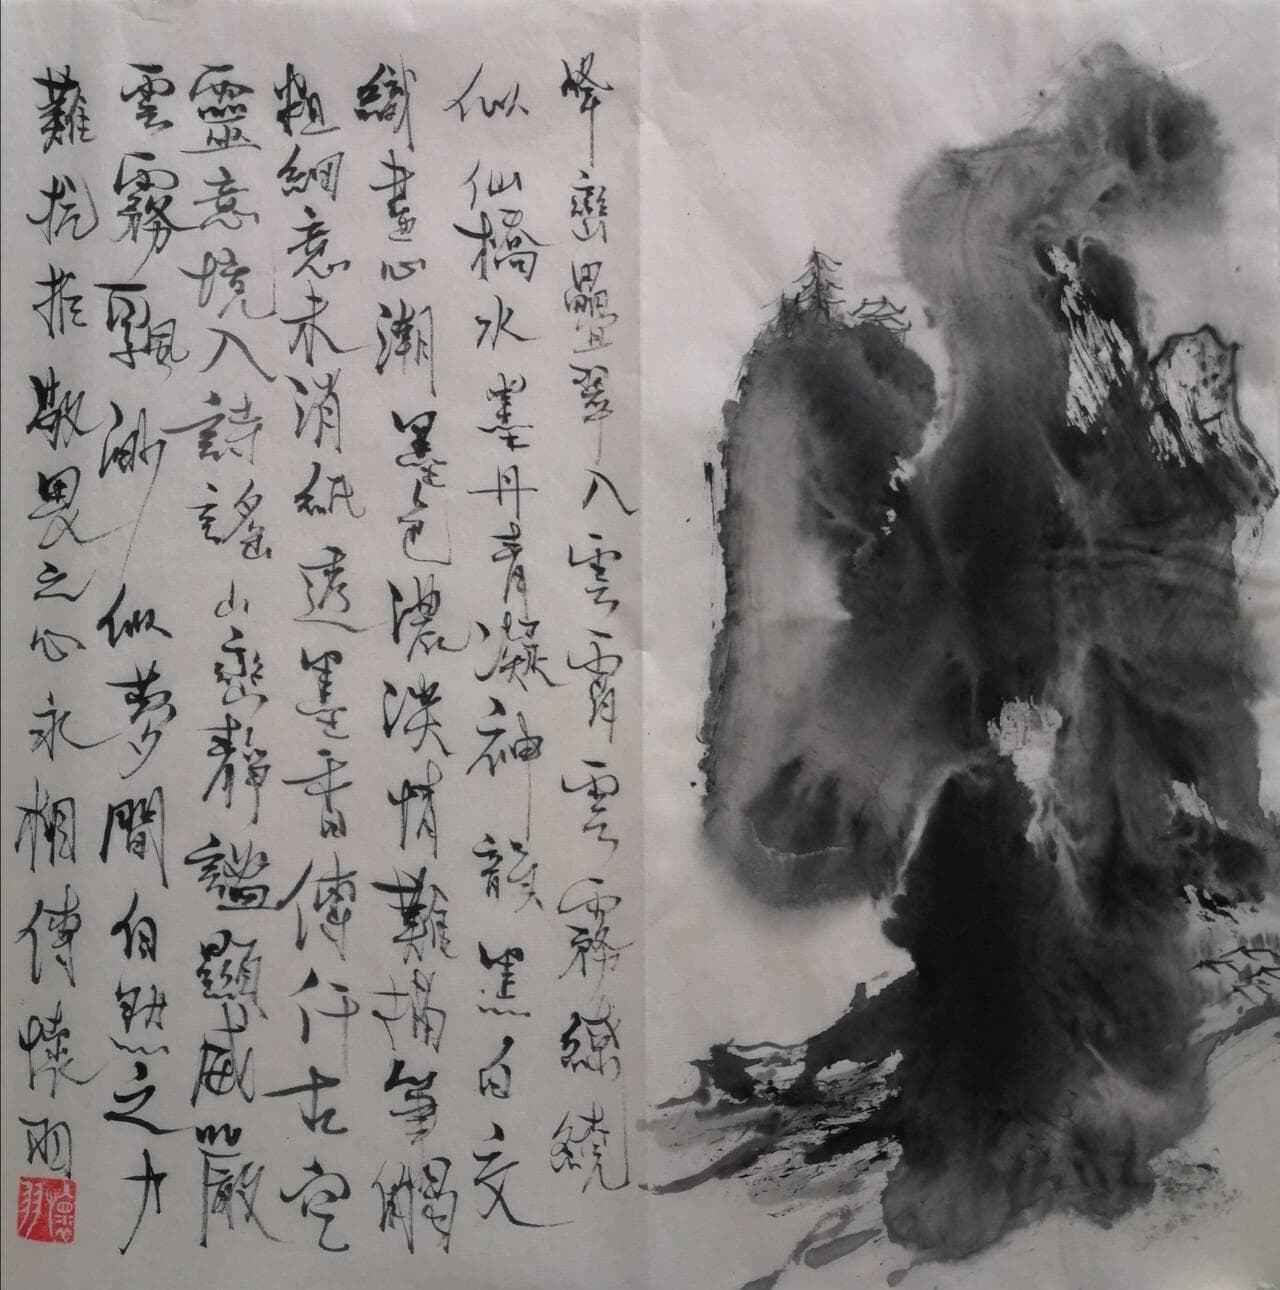 峰巒疊翠入雲霄雲霧繚繞
似仙橋水墨丹青凝神韻黑白交
織畫心潮墨色濃淡情難描筆觸
粗細意未消紙透墨香傳仟古空
靈意境入詩謠山巒靜謐顯威嚴
雲霧飄渺似夢間自然之力
難抗拒敬畏之心永相傳懷羽
懷羽